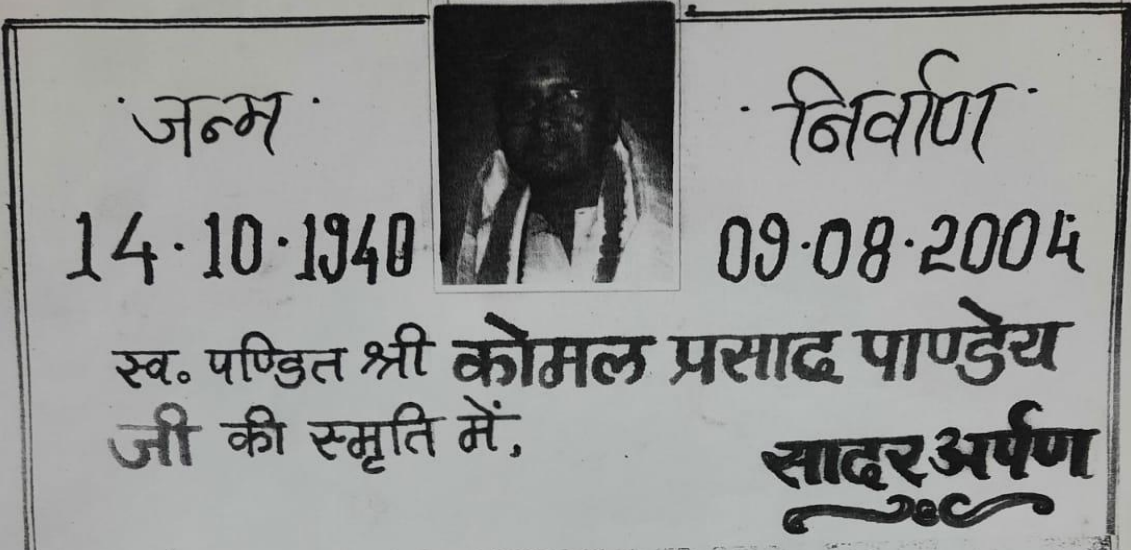 जन्म निर्वाण
14.10.1940 09.08.2004
स्व. पण्डित श्री कोमल प्रसाद पाण्डेय
जी की स्मृति में,
सादर अर्पण